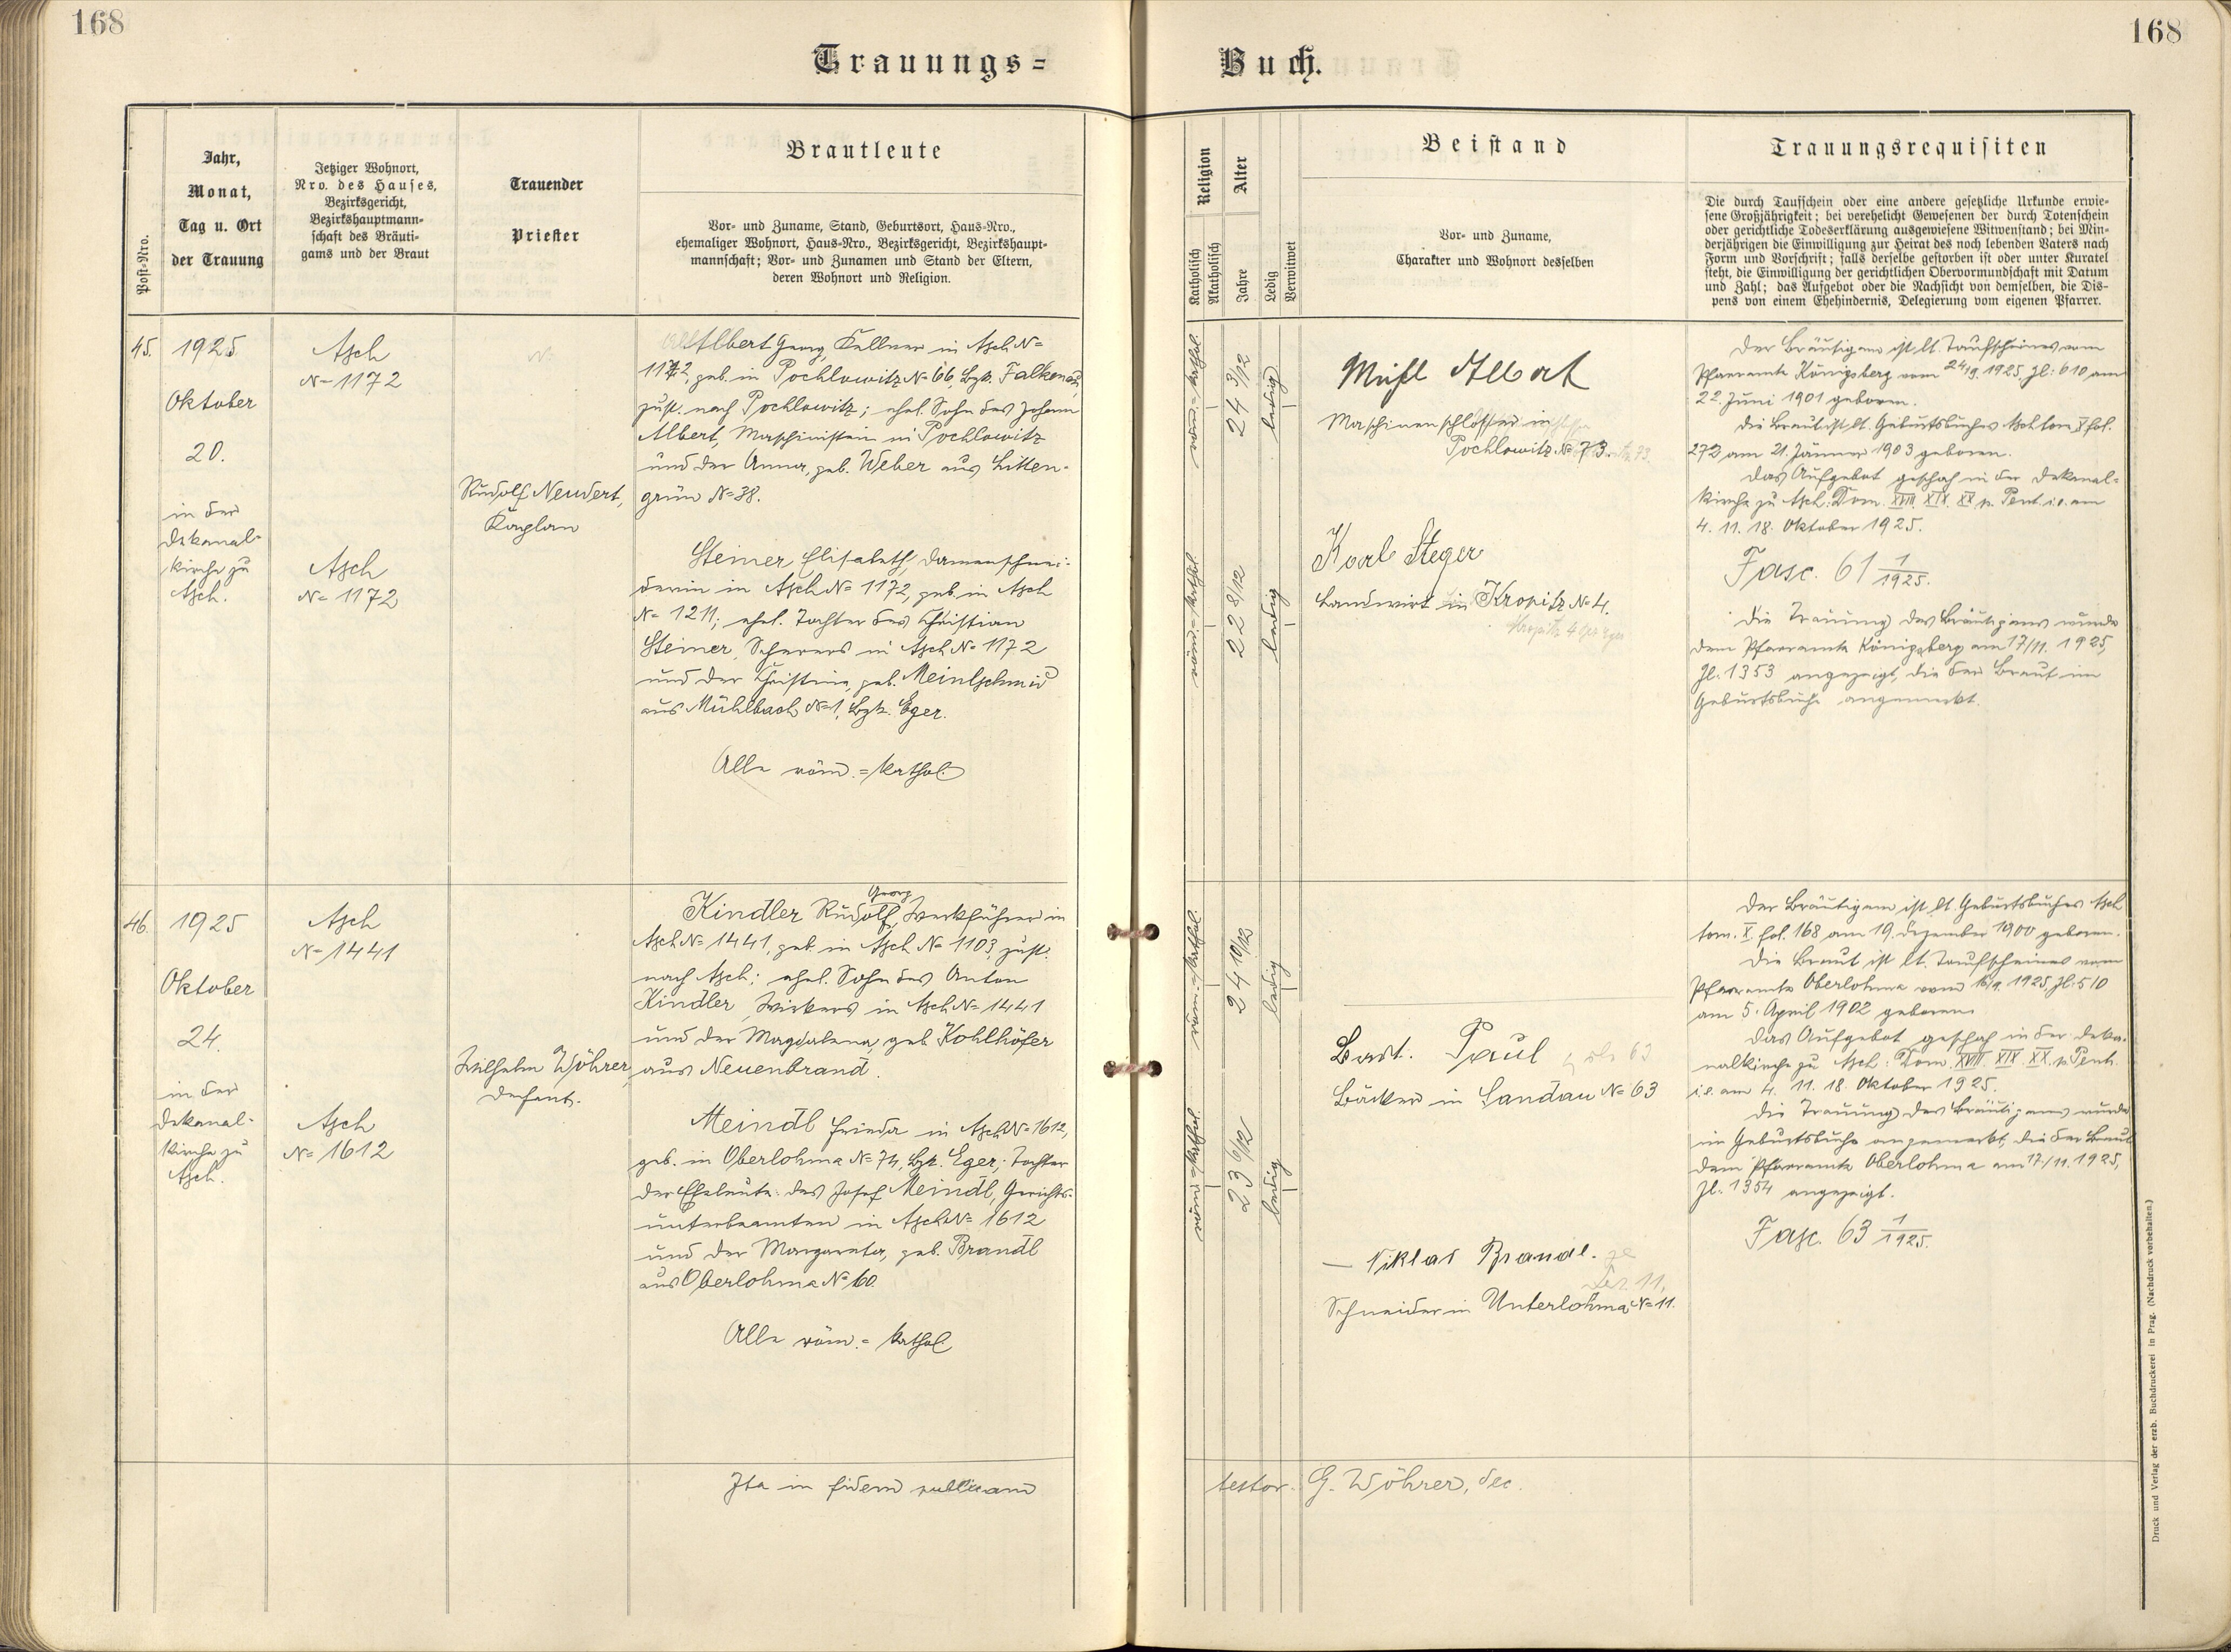 168
168
Trauungs=
Buch.
Post-Nro.
Jahr,
Monat,
Tag u. Ort
der Trauung
Jetziger Wohnort,
Nro. des Hauses,
Bezirksgericht,
Bezirkshauptmann-
schaft des Bräuti-
gams und der Braut
Trauender
Priester
Brautleute
Vor- und Zuname, Stand, Geburtsort, Haus-Nro.,
ehemaliger Wohnort, Haus-Nro., Bezirksgericht, Bezirkshaupt-
mannschaft; Vor- und Zunamen und Stand der Eltern,
deren Wohnort und Religion.
Religion
Katholisch
Akatholisch
Alter
Jahre
Ledig
Verwitwet
Beistand
Vor- und Zuname,
Charakter und Wohnort desselben
Trauungsrequisiten
Die durch Taufschein oder eine andere gesetzliche Urkunde erwie-
sene Großjährigkeit; bei verehelicht Gewesenen der durch Totenschein
oder gerichtliche Todeserklärung ausgewiesene Witwenstand; bei Min-
derjährigen die Einwilligung zur Heirat des noch lebenden Vaters nach
Form und Vorschrift; falls derselbe gestorben ist oder unter Kuratel
steht, die Einwilligung der gerichtlichen Obervormundschaft mit Datum
und Zahl; das Aufgebot oder die Nachsicht von demselben, die Dis-
pens von einem Ehehindernis, Delegierung vom eigenen Pfarrer.
45.
1925
Oktober
20.
in der
Dekanal-
kirche zu
Asch.
Asch
No 1172
Asch
No 1172
Rudolf Neudert,
Kaplan
Albert Georg, Kellner in Asch No
1172, geb. in Pochlowitz No 66, Bzk. Falkenau,
zust. nach Pochlowitz; ehel. Sohn des Johann
Albert, Maschinisten in Pochlowitz
und der Anna, geb. Weber aus Litten-
grün No 38.
Steiner Elisabeth, Damenschnei-
derin in Asch No 1172, geb. in Asch
No 1211; ehel. Tochter des Christian
Steiner, Scherers in Asch No 1172
und der Christine, geb. Meintschmid
aus Mühlbach No 1, Bzk. Eger.
Alle röm.=kathol.
röm.=kathol.
24 3/12
ledig
röm.=kathol.
22 8/12
ledig
Mühl Albert
Maschinenschlosser in
Pochlowitz No 73.
Karl Steger
Landwirt in Kropitz No 4.
Kropitz 4
Der Bräutigam ist lt. Taufscheines vom
Pfarramte Königsberg vom 24/9. 1925, Zl: 610 am
22. Juni 1901 geboren.
Die Braut ist lt. Geburtsbuches Asch tom X fol.
272 am 21. Jänner 1903 geboren.
Das Aufgebot geschah in der Dekanal-
kirche zu Asch: Dom. XVIII. XIX. XX. p. Pent. i. e. am
4. 11. 18. Oktober 1925.
Fasc. 61 1/1925.
Die Trauung des Bräutigams wurde
dem Pfarramte Königsberg am 17/11. 1925,
Zl. 1353 angezeigt, die der Braut im
Geburtsbuche angemerkt.
46.
1925
Oktober
24.
in der
Dekanal-
kirche zu
Asch.
Asch
No 1441
Asch
No 1612
Wilhelm Wöhrer,
Dechant.
Georg
Kindler Rudolf, Werkführer in
Asch No 1441, geb. in Asch No 1103, zust.
nach Asch; ehel. Sohn des Anton
Kindler, Wirkers in Asch No 1441
und der Magdalena, geb. Kohlhöfer
aus Neuenbrand.
Meindl Frieda in Asch No 1612,
geb. in Oberlohma No 74, Bzk. Eger; Tochter
der Eheleute: des Josef Meindl, Gerichts-
unterbeamten in Asch No 1612
und der Margareta, geb. Brandl
aus Oberlohma No 60.
Alle röm.=kathol
röm.=kathol.
24 10/12
ledig
röm.=kathol.
23 6/12
ledig
Bart. Paul
Bäcker in Sandau No 63
Niklas Brandl.
Schneider in Unterlohma No 11.
Der Bräutigam ist lt. Geburtsbuches Asch
tom. X. fol. 168 am 19. Dezember 1900 geboren.
Die Braut ist lt. Taufscheines vom
Pfarramte Oberlohma vom 16/9. 1925, Zl: 510
am 5. April 1902 geboren.
Das Aufgebot geschah in der Deka-
nalkirche zu Asch: Dom. XVIII. XIX. XX. p. Pent.
i. e. am 4. 11. 18. Oktober 1925.
Die Trauung des Bräutigams wurde
im Geburtsbuche angemerkt, die der Braut
dem Pfarramte Oberlohma am 17/11. 1925,
Zl. 1354 angezeigt.
Fasc. 63 1/1925.
Ita in fidem publicam
testor. G. Wöhrer, dec.
Druck und Verlag der erzb. Buchdruckerei in Prag. (Nachdruck vorbehalten.)